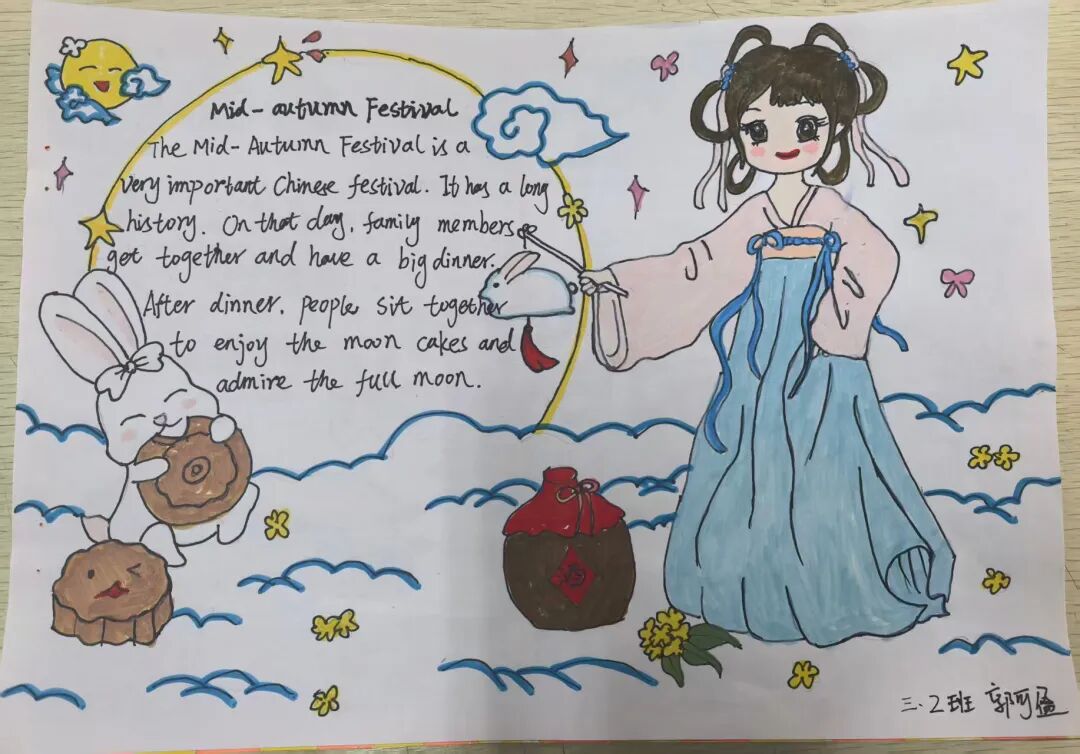 Mid-autumn Festival
The Mid-Autumn Festival is a
very important Chinese festival. It has a long
history. On that day, family members
get together and have a big dinner.
After dinner, people sit together
to enjoy the moon cakes and
admire the full moon.
酒
三.2班 郭阿盈